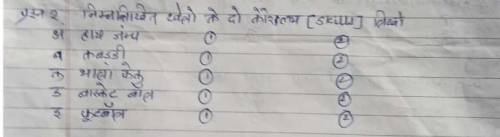 प्रश्न २ निम्नलिखित खेलो के दो कौशल्य [Skill] लिखो
अ हाय जम्प ① ②
ब कबड्डी ① ②
क भाला फेक ① ②
ड बास्केट बॉल ① ②
इ फूटबॉल ① ②